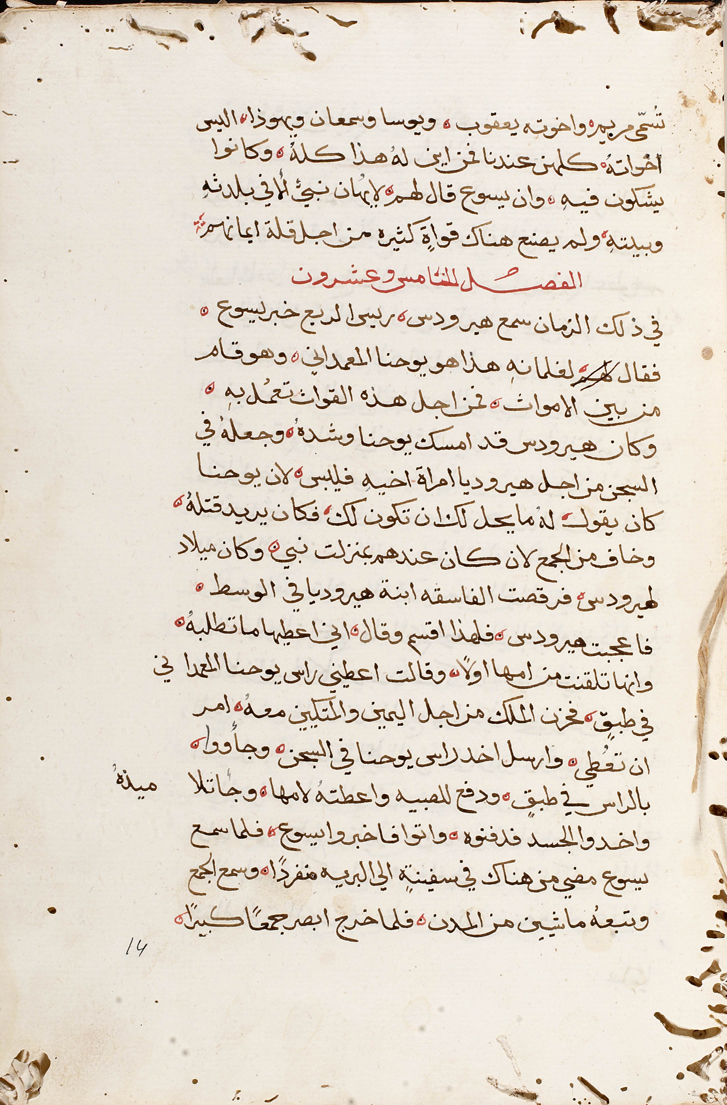 تُسَمّى مريم واخوته يعقوب ويوسا وسمعان ويهوذا اليس
اخواتهُ كلهن عندنا فمن اين لهُ هذا كلهُ وكانوا
يشكون فيهِ وان يسوع قال لهم لايُهان نبيٌ الا في بلدتهِ
وبيتهِ ولم يصنع هناك قواةٍ كثيره من اجل قلة ايمانهم
الفصــل الخامس وعشرون
في ذلك الزمان سمع هيرودس ريس الربع خبر يسوع
فقال لغلمانهِ هذا هو يوحنا المعمداني وهو قام
من بين الاموات فمن اجل هذه القوات تعمُل بهِ
وكان هيرودس قد امسك يوحنا وشدهُ وجعلهُ في
السجن من اجل هيروديا امراة اخيه فيلبس لان يوحنا
كان يقول لهُ ما يحل لك ان تكون لك فكان يريد قتلهُ
وخاف من الجمع لان كان عندهم بمنزلت نبي وكان ميلاد
لهيرودس فرقصت الفاسقه ابنة هيروديا في الوسط
فاعجبت هيرودس فلهذا اقسم وقال اني اعطيها ما تطلبهُ
وانها تلقنت من امها اولًا وقالت اعطيني راس يوحنا المعمداني
في طبقٍ فحزن الملك من اجل اليمين والمتكيين معهُ امر
ان تعُطي وارسل اخد راس يوحنا في السجن وجاووا
بالراس في طبقٍ ودفع للصبيه واعطتهُ لامها وجاتلا
ميدهُ
واخدوا الجسد فدفنوه واتوا فاخبروا يسوع فلما سمع
يسوع مضي من هناك في سفينةٍ الي البريه منفردًا وسمع الجمع
وتبعهُ ماشيين من المدن فلما خرج ابصر جمعًا كبيرًا
14